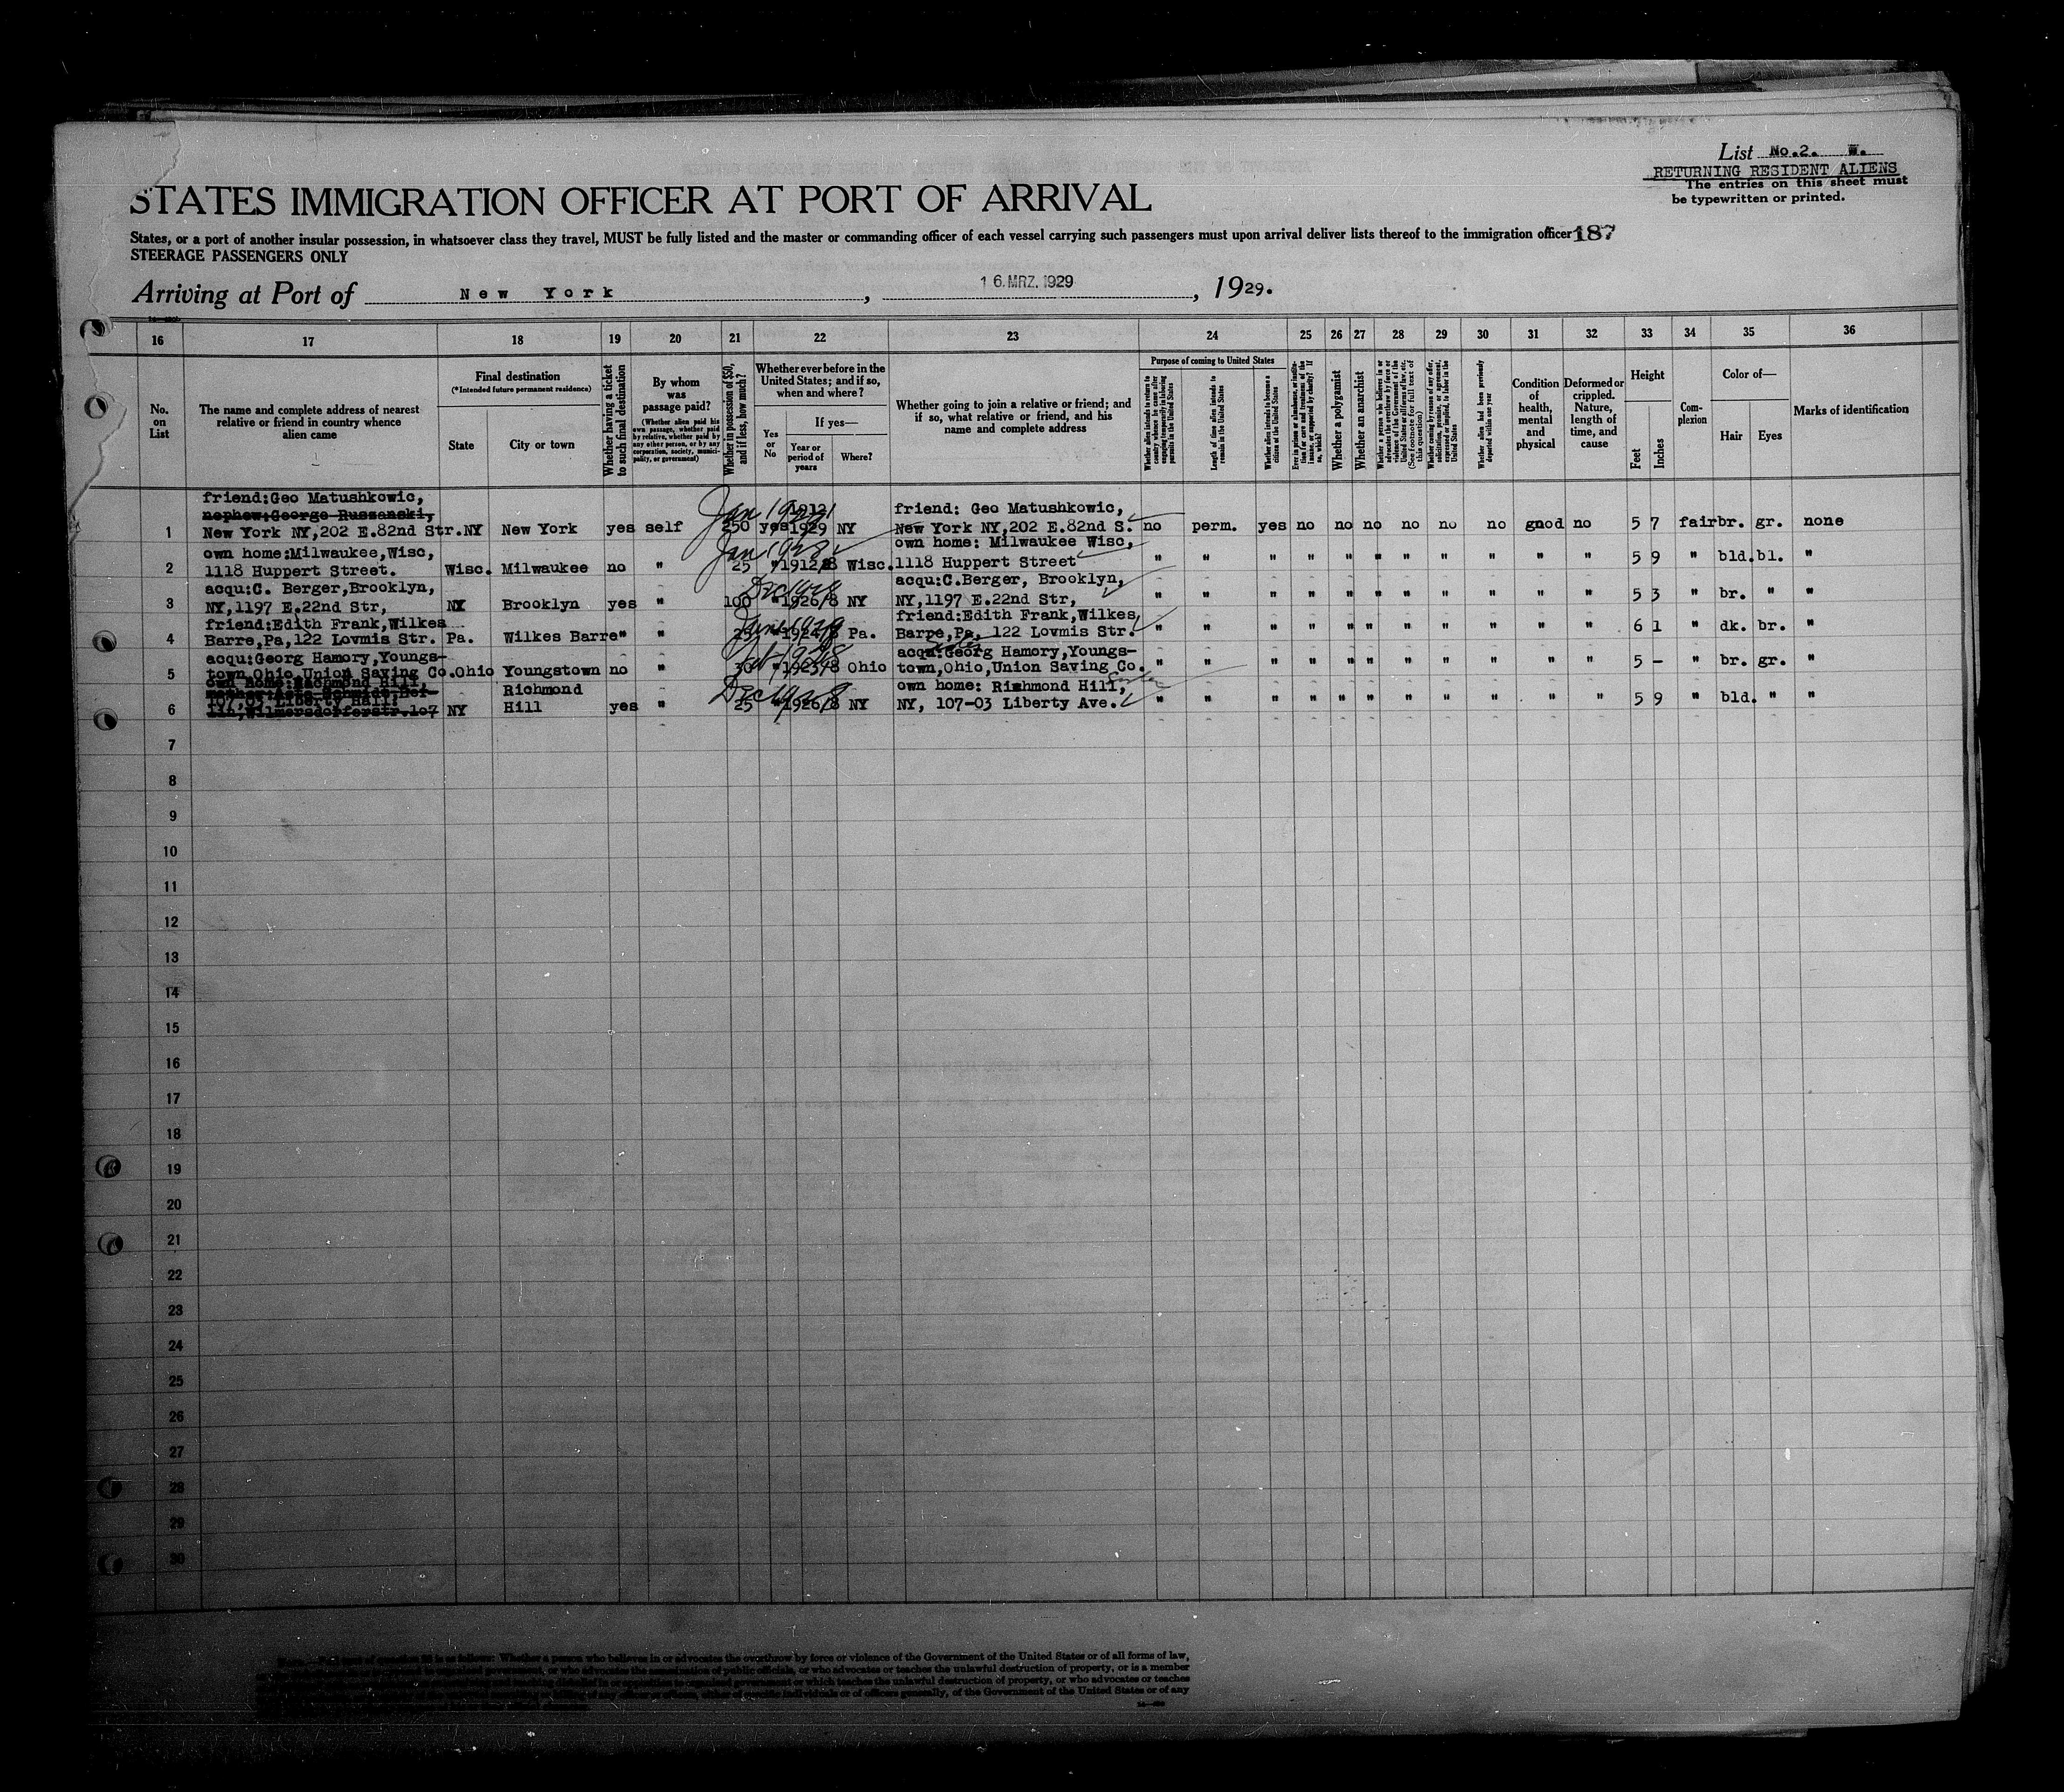 List No.2. W.
RETURNING RESIDENT ALIENS
The entries on this sheet must
be typewritten or printed.
STATES IMMIGRATION OFFICER AT PORT OF ARRIVAL
States, or a port of another insular possession, in whatsoever class they travel, MUST be fully listed and the master or commanding officer of each vessel carrying such passengers must upon arrival deliver lists thereof to the immigration officer 187
STEERAGE PASSENGERS ONLY
Arriving at Port of New York, 16. MRZ. 1929, 1929.
16 17 18 19 20 21 22 23 24 25 26 27 28 29 30 31 32 33 34 35 36
No. on List
The name and complete address of nearest relative or friend in country whence alien came
Final destination
(*Intended future permanent residence)
State
City or town
Whether having a ticket to such final destination
By whom was passage paid?
(Whether alien paid his own passage, whether paid by relative, whether paid by any other person, or by any corporation, society, municipality, or government)
Whether in possession of $50, and if less, how much?
Whether ever before in the United States; and if so, when and where?
Yes or No
If yes—
Year or period of years
Where?
Whether going to join a relative or friend; and if so, what relative or friend, and his name and complete address
Purpose of coming to United States
Length of time alien intends to remain in the United States
Whether alien intends to become a citizen of the United States
Whether a polygamist
Whether an anarchist
Whether alien had been previously deported within one year
Condition of health, mental and physical
Deformed or crippled. Nature, length of time, and cause
Height
Feet
Inches
Complexion
Color of—
Hair
Eyes
Marks of identification
friend:Geo Matushkowic,
nephew:George Ruszanski,
1 New York NY,202 E.82nd Str. NY New York yes self 250 yes 1912 1929 NY
Jan 1929
friend: Geo Matushkowic,
New York NY,202 E.82nd S. no perm. yes no no no no no no good no 5 7 fair br. gr. none
own home:Milwaukee,Wisc,
2 1118 Huppert Street. Wisc. Milwaukee no " 25 " 1912/8 Wisc.
Jan 1928
own home: Milwaukee Wisc,
1118 Huppert Street " " " " " " " " " " " " 5 9 " bld. bl. "
acqu:C. Berger,Brooklyn,
3 NY,1197 E.22nd Str, NY Brooklyn yes " 100 " 1926/8 NY
Dec 1928
acqu:C.Berger, Brooklyn,
NY,1197 E.22nd Str, " " " " " " " " " " " " 5 3 " br. " "
friend:Edith Frank,Wilkes
4 Barre,Pa,122 Lovmis Str. Pa. Wilkes Barre " " 25 " 1924/8 Pa.
friend:Edith Frank,Wilkes
Barre,Pa, 122 Lovmis Str. " " " " " " " " " " " " 6 1 " dk. br. "
acqu:Georg Hamory,Youngs-
5 town,Ohio,Union Saving Co. Ohio Youngstown no " 30 " 1923/8 Ohio
acqu:Georg Hamory,Youngs-
town,Ohio,Union Saving Co. " " " " " " " " " " " " 5 - " br. gr. "
own home:Richmond Hill,
107,03 Liberty Hall.
6 NY Richmond Hill yes " 25 " 1926/8 NY
Dec 1928
own home: Richmond Hill,
NY, 107-03 Liberty Ave. " " " " " " " " " " " " 5 9 " bld. " "
7
8
9
10
11
12
13
14
15
16
17
18
19
20
21
22
23
24
25
26
27
28
29
30
Whether a person who believes in or advocates the overthrow by force or violence of the Government of the United States or of all forms of law,
or who advocates the assassination of public officials, or who advocates or teaches the unlawful destruction of property, or is a member
which teaches the unlawful destruction of property, or who advocates or teaches
of the Government of the United States or of any